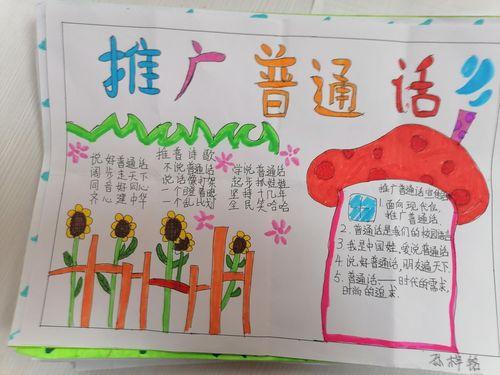 推广普通话
推普诗歌
说好普通话
阔步走天下
同音好同心
齐心建中华
不说普通话
说话像打架
一个瞪着眼
一个乱比划
学说普通
起步抓娃娃
坚持十几年
全民笑哈哈
推广普通话宣传
1.面向现代化,
推广普通话.
2.普通话是我们的校园语言
3.我是中国娃,爱说普通话
4.说好普通话,朋友遍天下.
5.普通话——时代的需求,
时尚的追求.